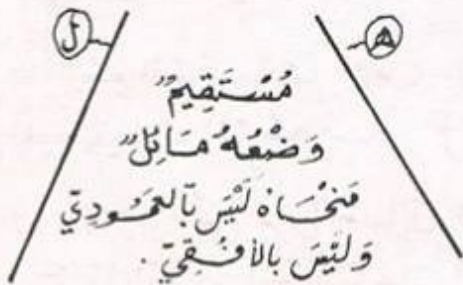 ل
ھ
مُسْتَقِيمٌ
وَضْعُهُ مَائِلٌ
مَنْحَاهُ لَيْسَ بِالعَمُودِيِّ
وَلَيْسَ بِالأُفُقِيِّ.